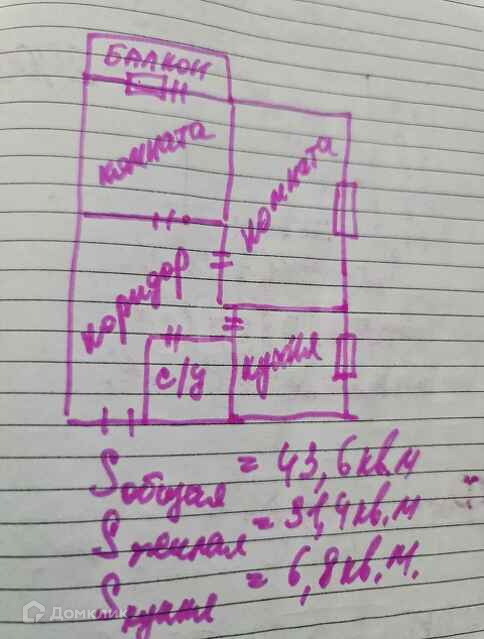 БАЛКОН
комната
комната
коридор
кухня
с/у
Sобщая = 43,6 кв.м
Sжилая = 31,4 кв.м
Sкухня = 6,8 кв.м.
Домклик